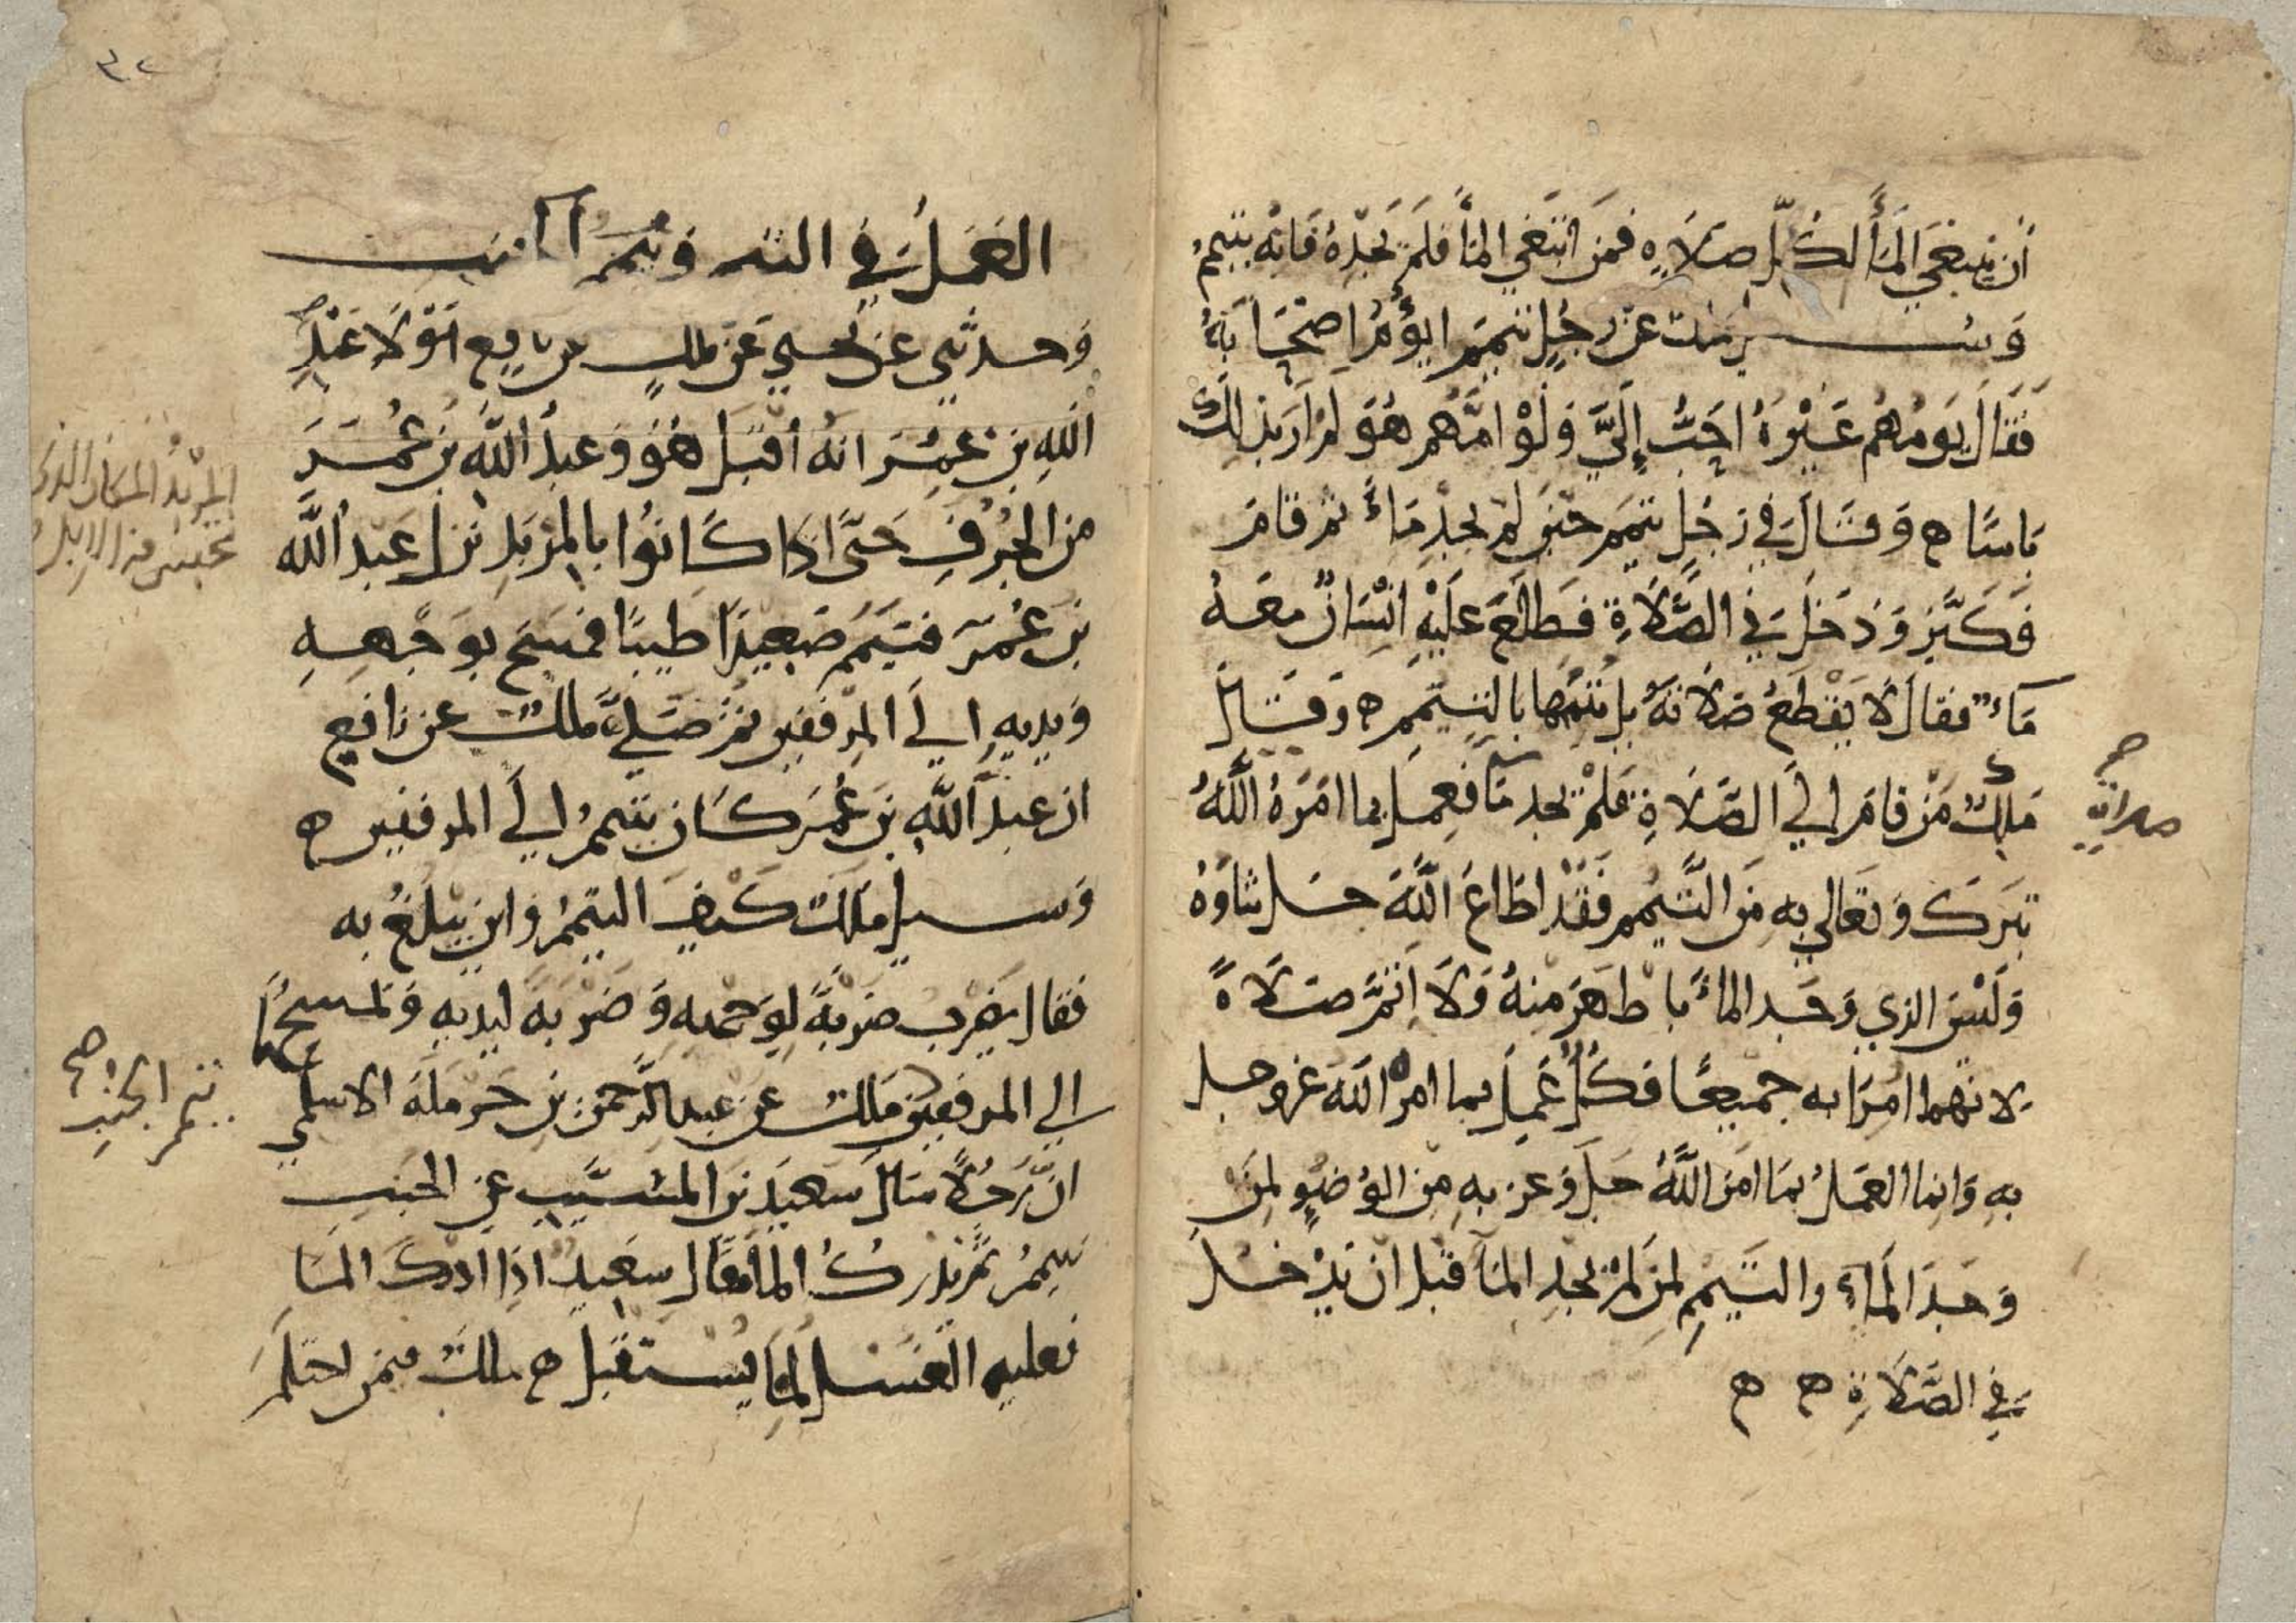 أن يبتغي الماء لكل صلاة فمن ابتغى الماء فلم يجده فانه يتيمم
وسئل ملك عن رجل تيمم ايؤم اصحابه
فقال يؤمهم غيره احب إلي ولو امهم هو لم ار بذلك
باسا ه وقال في رجل تيمم حين لم يجد ماء ثم قام
فكبر ودخل في الصلاة فطلع عليه انسان معه
ماء فقال لا يقطع صلاته بل يتمها بالتيمم ه وقال
ملك من قام الى الصلاة فلم يجد ماء فعمل بما امره الله
تبرك وتعالى به من التيمم فقد اطاع الله جل ثناؤه
وليس الذي وجد الماء باطهر منه ولا اتم صلاة
لانهما امرا به جميعا فكل عمل بما امره الله عز وجل
به وانما العمل بما امر الله جل وعز به من الوضوء لمن
وجد الماء والتيمم لمن لم يجد الماء قبل ان يدخل
في الصلاة ه ه
٣٢
العمل في التيمم
وحدثني عن يحيى عن ملك عن نافع مولا عبد
الله بن عمر انه أقبل هو وعبد الله بن عمر
من الجرف حتى اذا كانوا بالمربد نزل عبد الله
بن عمر فتيمم صعيدا طيبا فمسح بوجهه
ويديه الى المرفقين ثم صلى ملك عن نافع
ان عبد الله بن عمر كان يتيمم الى المرفقين ه
وسيل ملك كيف التيمم واين يبلغ به
فقال يضرب ضربة لوجهه وضربة ليديه ويمسحهما
الى المرفقين ملك عن عبد الرحمن بن حرملة الاسلمي
ان رجلا سال سعيد بن المسيب عن الجنب
يتيمم ثم يدرك الماء فقال سعيد اذا ادرك الماء
فعليه الغسل لما يستقبل ه ملك فيمن احتلم
المربد المكان الذي
تحبس فيه الإبل
تيمم الجنب